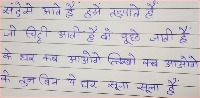 संदेसे आते हैं हमें तड़पाते हैं
जो चिट्ठी आती है वो पूछे जाती है
के घर कब आओगे लिखो कब आओगे
के तुम बिन ये घर सूना सूना है